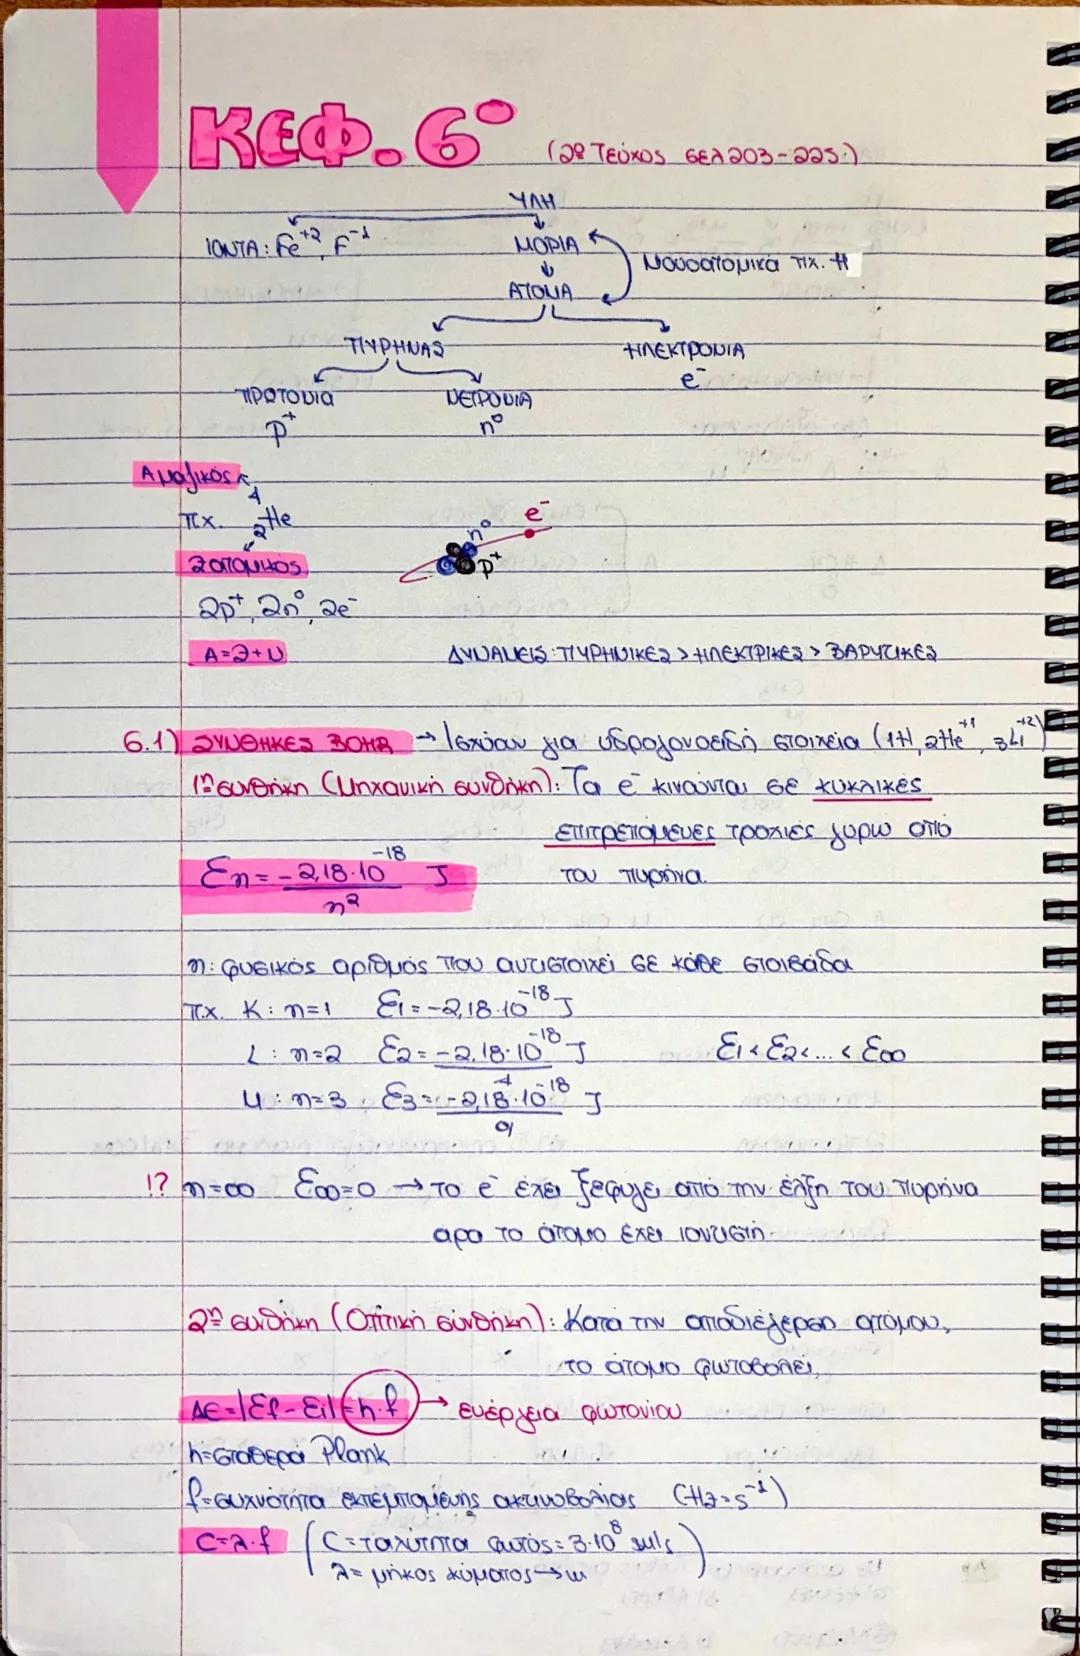 ΚΕΦ. 6°
(2º Τεύχος σελ 203-225.)
ΥΛΗ
ΙΟΝΤΑ: Fe⁺², F⁻¹
ΜΟΡΙΑ
Μονοατομικά πχ. H
ΑΤΟΜΑ
ΠΥΡΗΝΑΣ
ΗΛΕΚΤΡΟΝΙΑ
e⁻
ΠΡΩΤΟΝΙΑ
ΝΕΤΡΟΝΙΑ
p⁺
n⁰
Α μαζικός
πχ. ⁴₂He
Ζ ατομικός
n⁰ e⁻
p⁺
2p⁺, 2n⁰, 2e⁻
A=Z+N
ΔΥΝΑΜΕΙΣ: ΠΥΡΗΝΙΚΕΣ > ΗΛΕΚΤΡΙΚΕΣ > ΒΑΡΥΤΙΚΕΣ
6.1) ΣΥΝΘΗΚΕΣ BOHR → Ισχύαν για υδρογονοειδή στοιχεία (₁H, ₂He⁺¹, ₃Li⁺²)
1η συνθήκη (Μηχανική συνθήκη): Τα e⁻ κινούνται σε κυκλικές
επιτρεπόμενες τροχιές γύρω από
του πυρήνα.
Εn = -2,18·10⁻¹⁸/n² J
n: φυσικός αριθμός που αντιστοιχεί σε κάθε στοιβάδα
π.χ. K: n=1 Ε₁=-2,18·10⁻¹⁸ J
L: n=2 Ε₂=-2,18·10⁻¹⁸/4 J Ε₁<Ε₂<...<Ε∞
M: n=3 Ε₃=-2,18·10⁻¹⁸/9 J
!? n=∞ Ε∞=0 → το e⁻ έχει ξεφύγει από την έλξη του πυρήνα
αρα το άτομο έχει ιονιστή.
2η συνθήκη (Οπτική συνθήκη): Κατά την αποδιέγερση ατόμου,
το άτομο φωτοβολεί,
ΔΕ=|Εf-Εi|=h·f → ενέργεια φωτονίου
h=σταθερά Plank
f=συχνότητα εκπεμπομένης ακτινοβολίας (Hz=s⁻¹)
C=λ·f (C=ταχύτητα φωτός=3·10⁸ m/s
λ=μήκος κύματος→m)